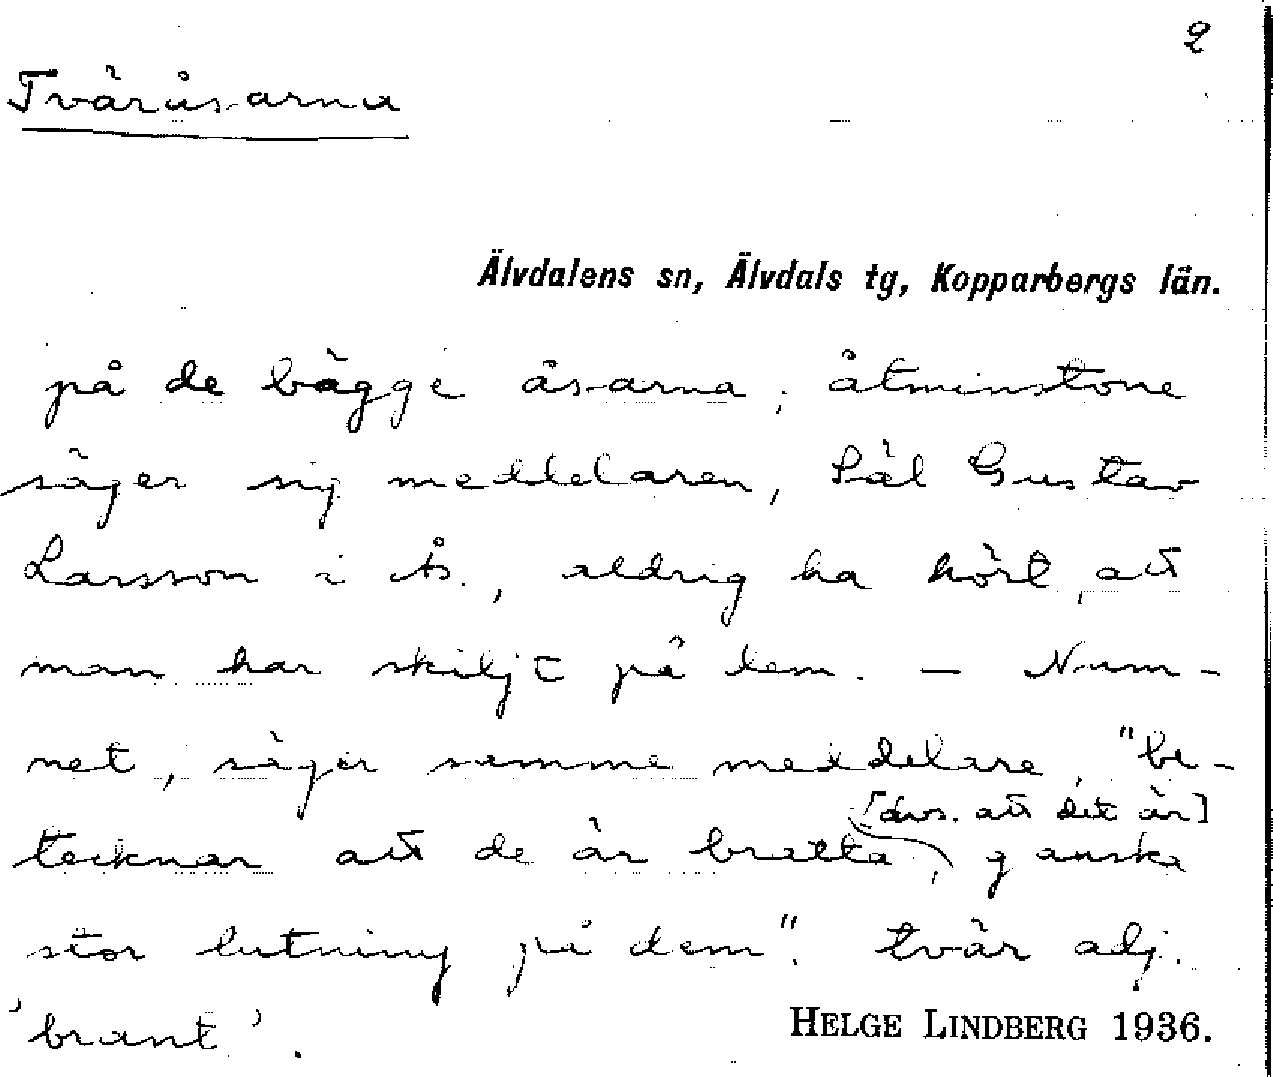 2
Tväråsarna
Älvdalens sn, Älvdals tg, Kopparbergs län.
på de bägge åsarna; åtminstone
säger sig meddelaren, Päl Gustav
Larsson i Ås, aldrig ha hört, att
man har skiljt på dem. — Nam-
net, säger samme meddelare, "be-
[dvs. att det är]
tecknar att de är bratta, ganska
stor lutning på dem". tvär adj.
'brant'.
HELGE LINDBERG 1936.